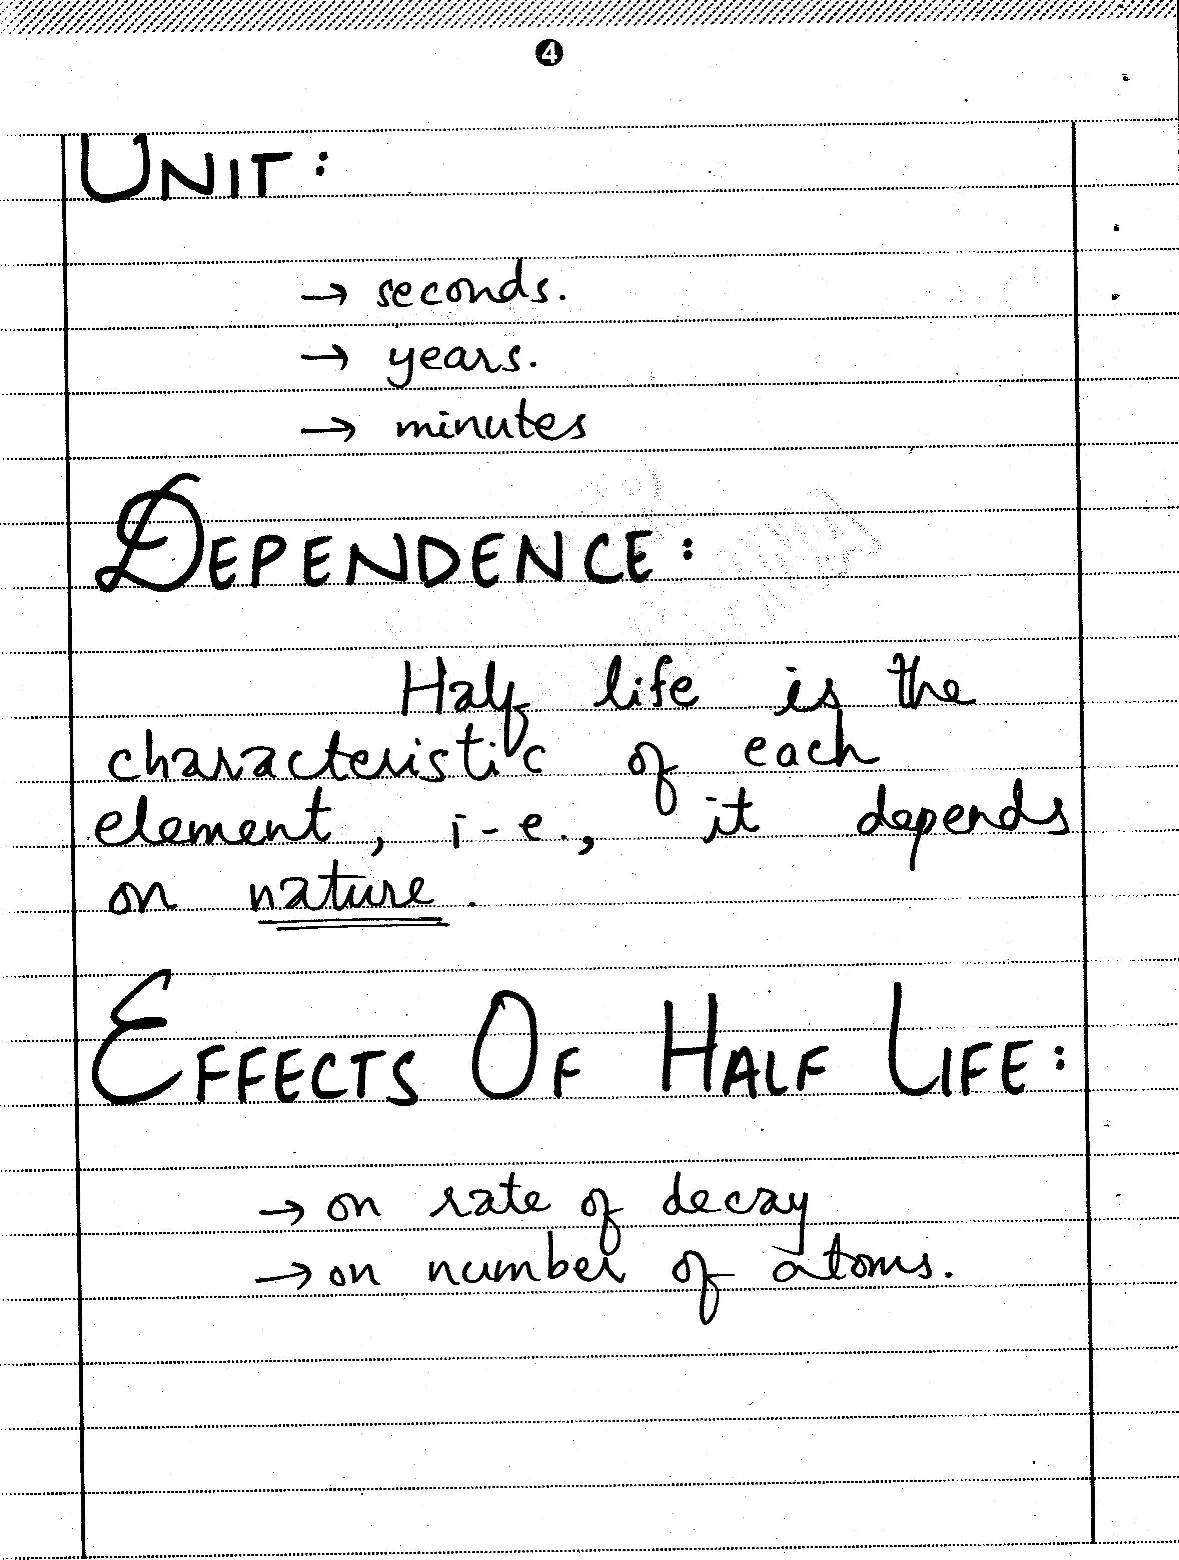 4
UNIT:
→ seconds.
→ years.
→ minutes
DEPENDENCE:
Half life is the
characteristic of each
element, i-e., it depends
on nature.
EFFECTS OF HALF LIFE:
→ on rate of decay
→ on number of atoms.